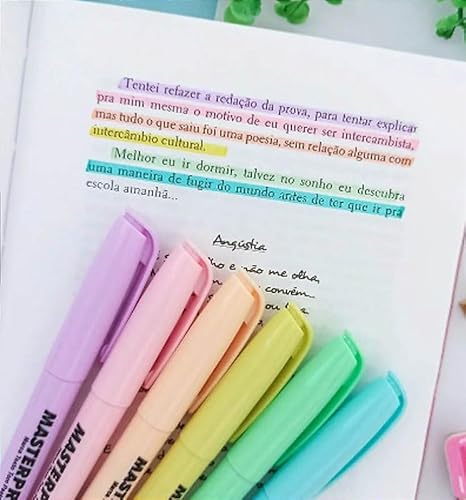 Tentei refazer a redação da prova, para tentar explicar
pra mim mesma o motivo de eu querer ser intercambista,
mas tudo o que saiu foi uma poesia, sem relação alguma com
intercâmbio cultural.
Melhor eu ir dormir, talvez no sonho eu descubra
uma maneira de fugir do mundo antes de ter que ir pra
escola amanhã...
Angústia
e não me olha,
convém
ou
MASTERPR
MASTERP
MASTER
MAST